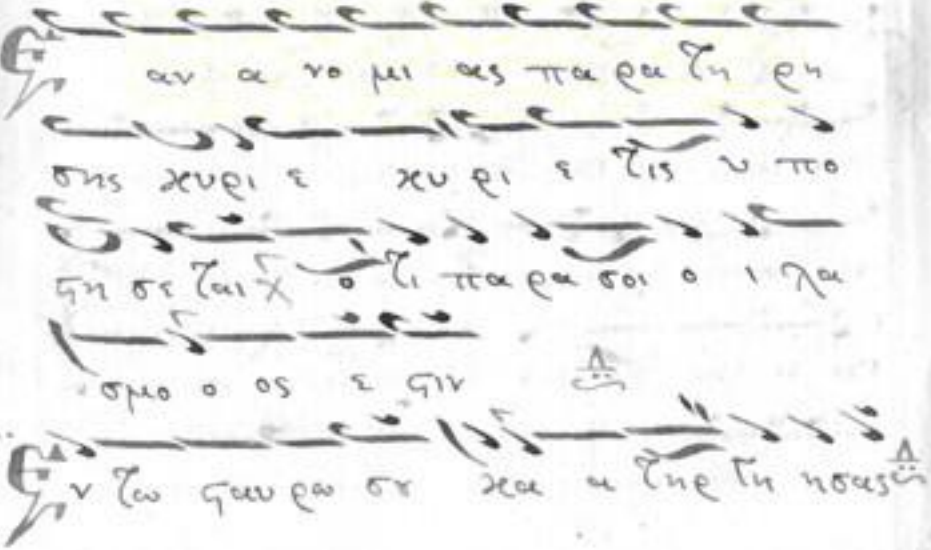 Ε αν α νο μι ας πα ρα τη ρη
σης κυρι ε κυ ρι ε τις υ πο
ϛη σε ται ο τι πα ρα σοι ο ι λα
σμο ο ος ε ϛιν
Ε ν τω ϛαυ ρω σȣ κα α τηρ τη ησας